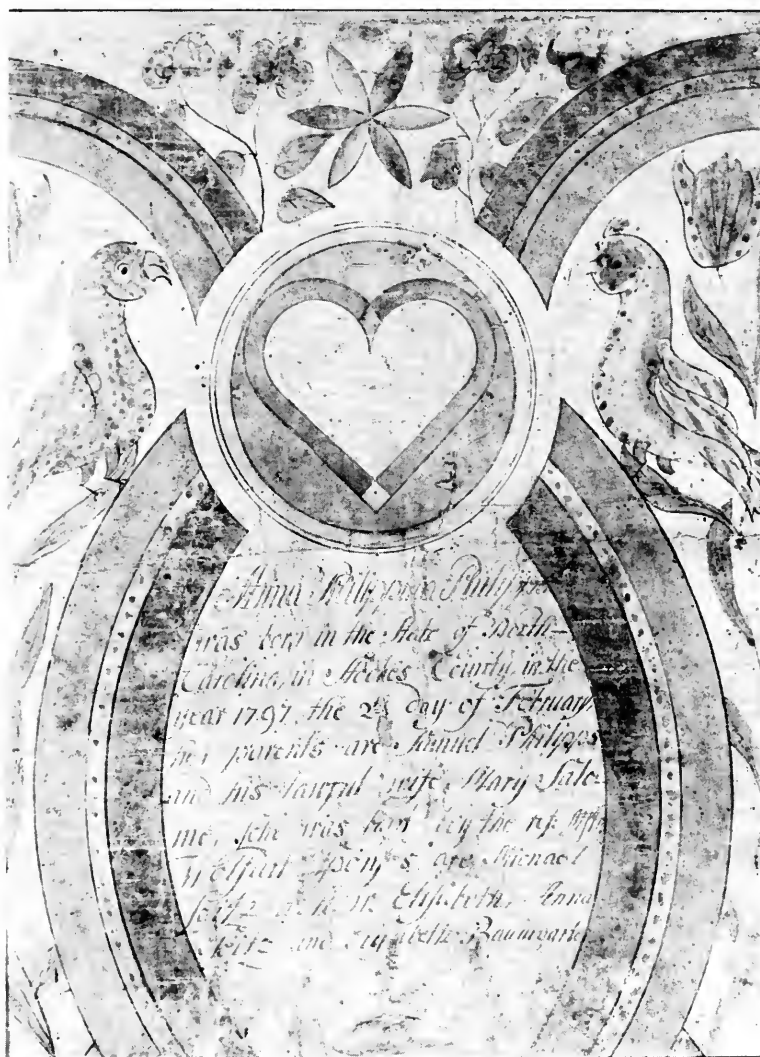 Anna Philippina Philipps
was born in the State of North-
Carolina, in Stockes County, in the
year 1797, the 2d day of February,
her parents are Samuel Philipps
and his lawful wife, Mary Salo-
me, sche was by the
are Michael
Elisabeth, Anna
and Elisabeth Baumgarte